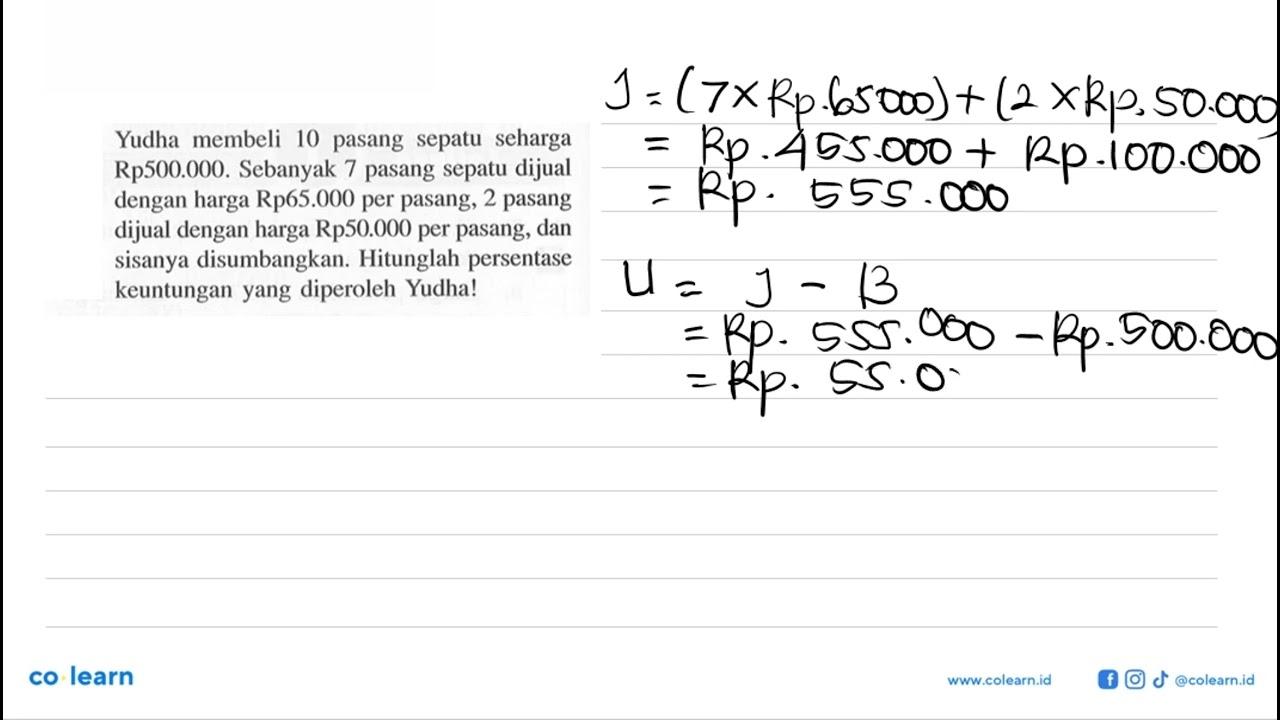 Yudha membeli 10 pasang sepatu seharga
Rp500.000. Sebanyak 7 pasang sepatu dijual
dengan harga Rp65.000 per pasang, 2 pasang
dijual dengan harga Rp50.000 per pasang, dan
sisanya disumbangkan. Hitunglah persentase
keuntungan yang diperoleh Yudha!
J = (7 × Rp.65000) + (2 × Rp. 50.000)
= Rp. 455.000 + Rp. 100.000
= Rp. 555.000
U = J - B
= Rp. 555.000 - Rp. 500.000
= Rp. 55.0
co·learn
www.colearn.id
@colearn.id